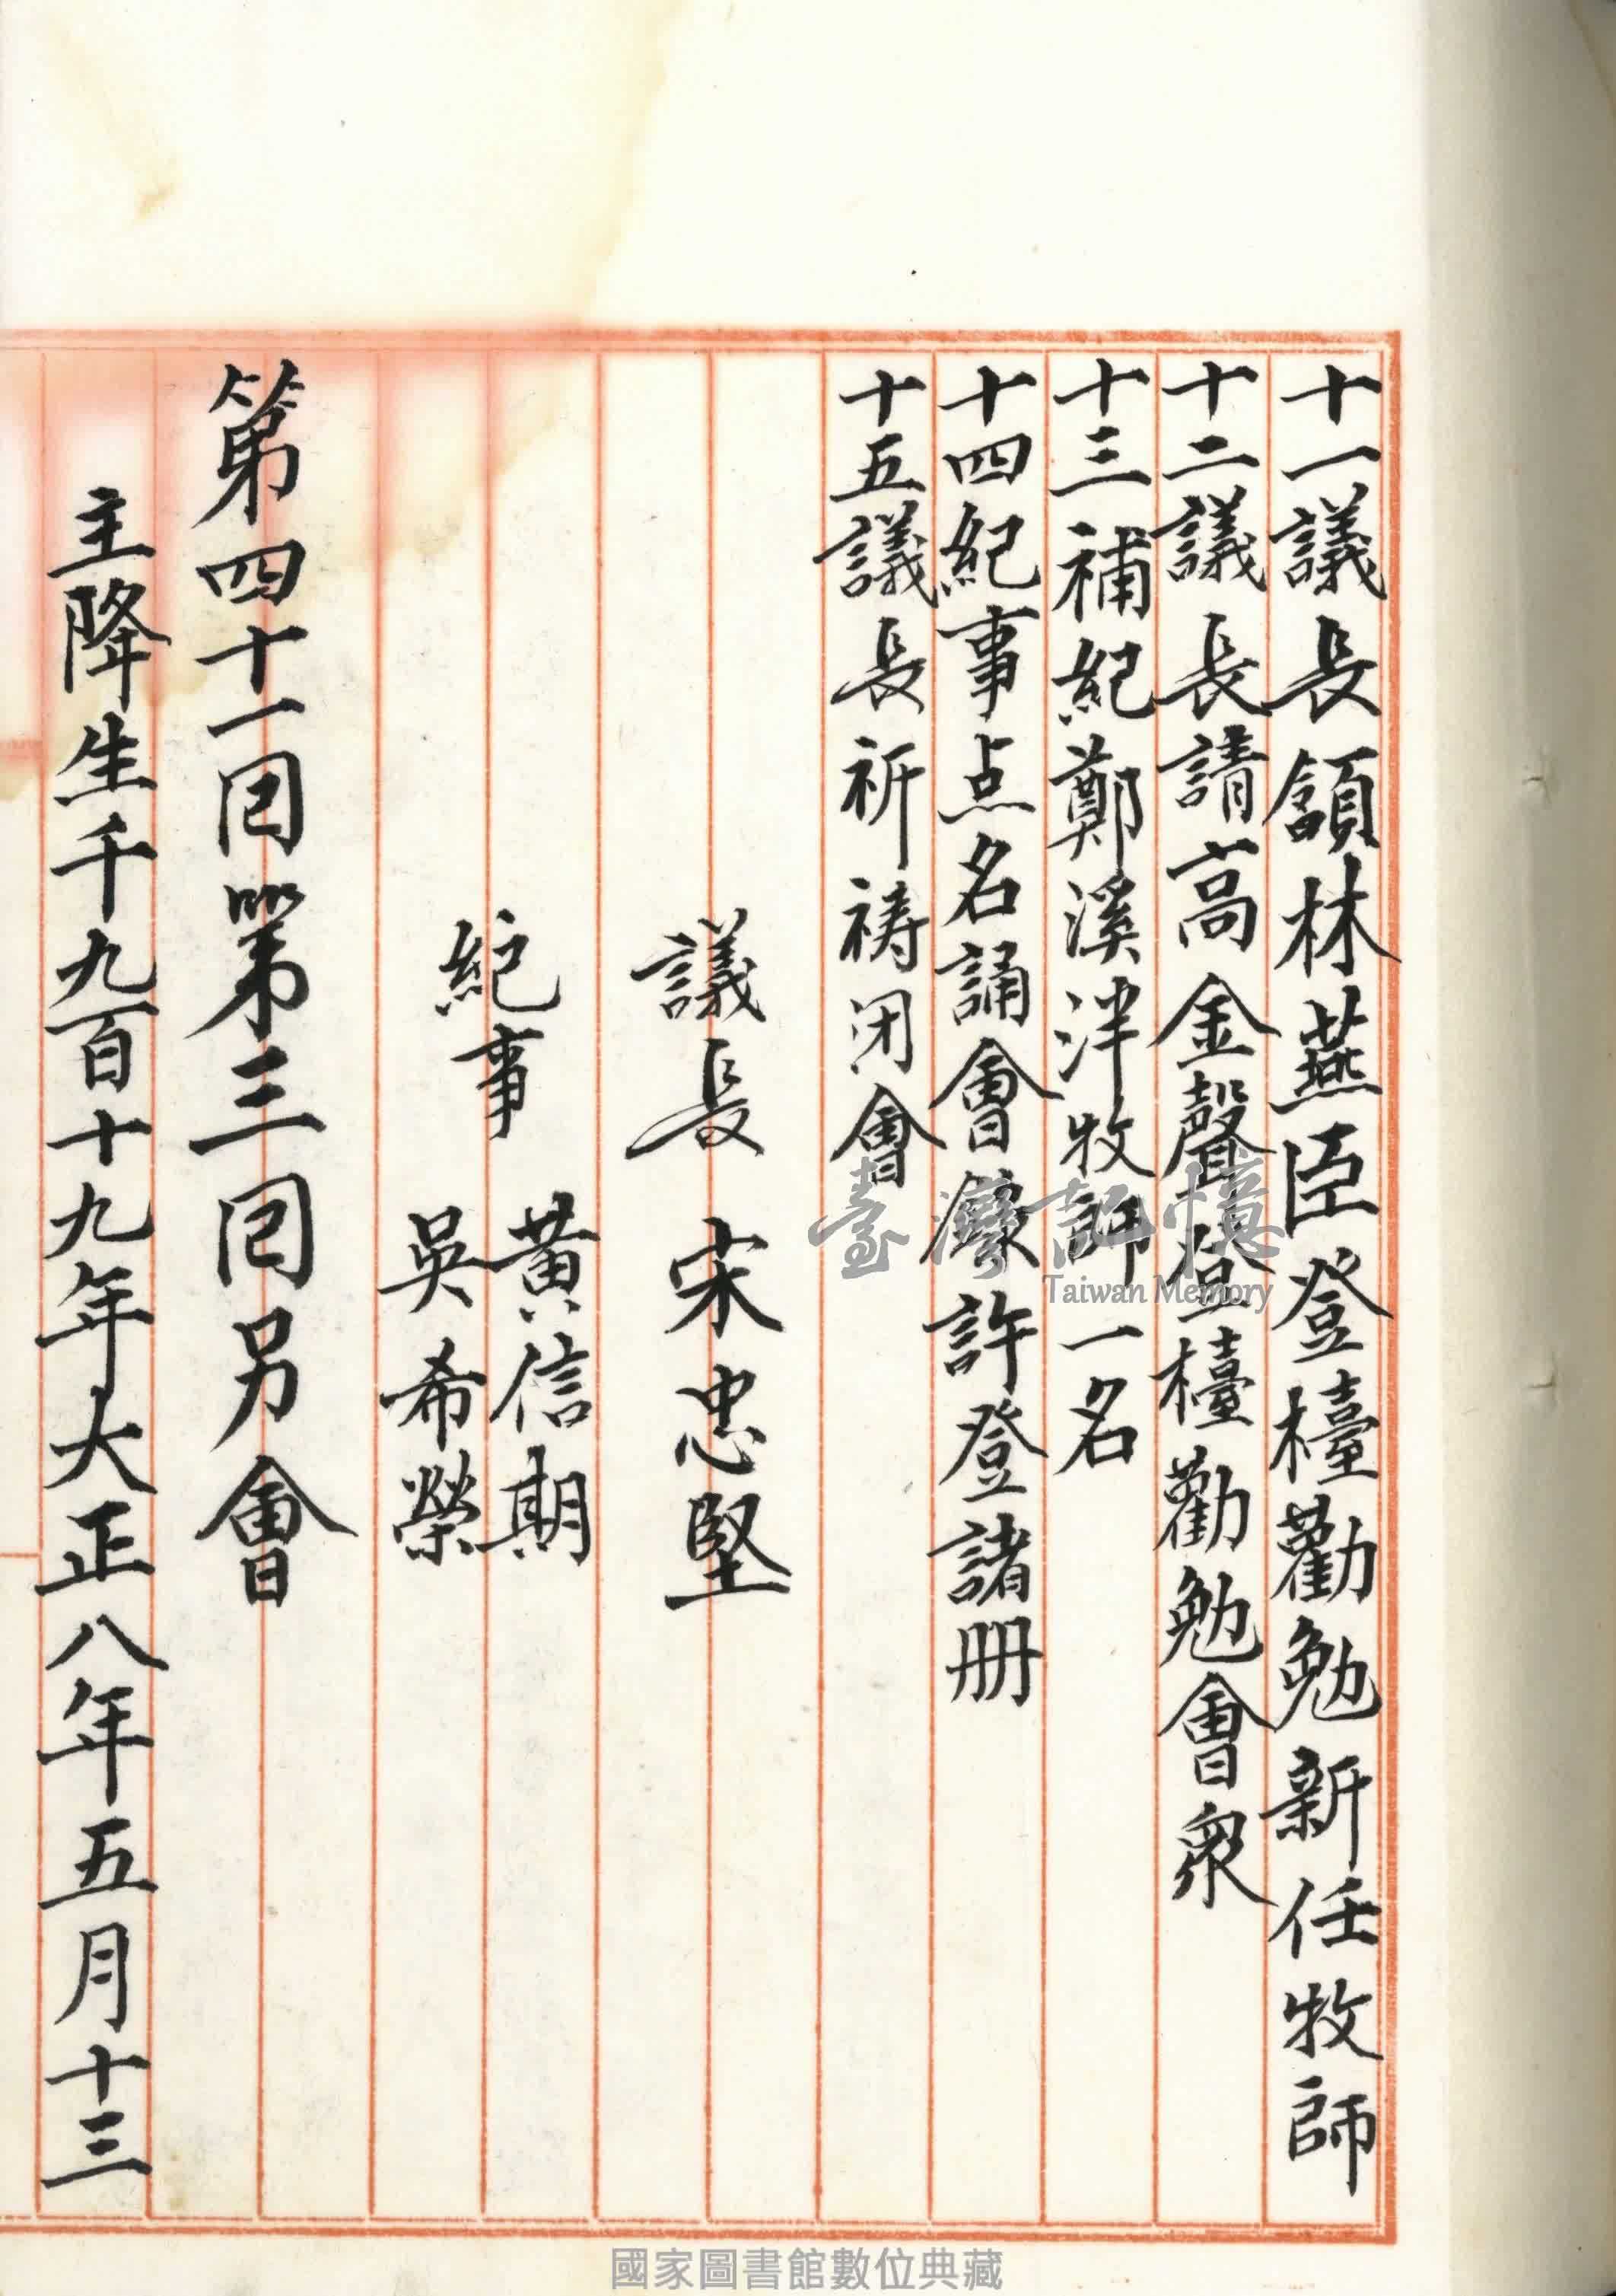 十一議長領林燕臣登檯勸勉新任牧師
十二議長請高金聲登檯勸勉會眾
十三補紀鄭溪泮牧師一名
十四紀事点名誦會錄許登諸册
十五議長祈禱闭會
議長 宋忠堅
紀事 黃信期
吳希榮
第四十一囘第三囘另會
主降生千九百十九年大正八年五月十三
臺灣記憶
Taiwan Memory
國家圖書館數位典藏